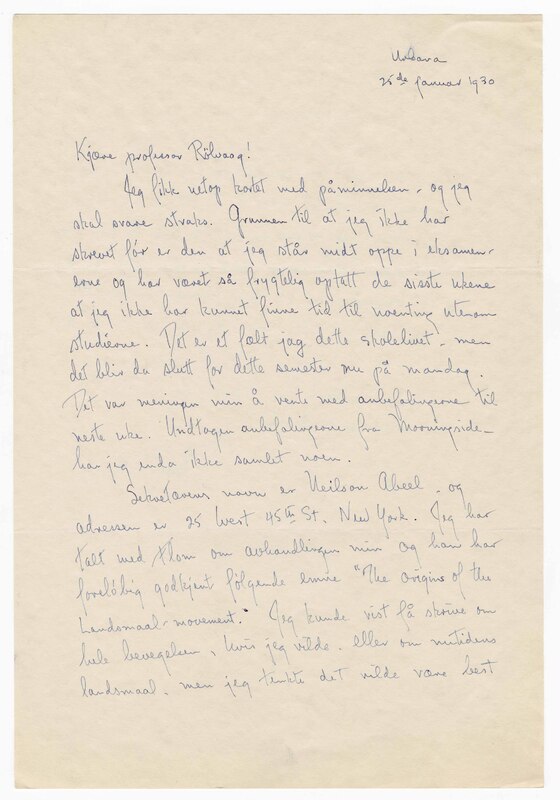 Urbana
25de Januar 1930
Kjære professor Rölvaag!
Jeg fikk netop kortet med påminnelsen, og jeg
skal svare straks. Grunnen til at jeg ikke har
skrevet för er den at jeg står midt oppe i eksamen-
erne og har været så frygtelig optatt de sisste ukene
at jeg ikke har kunnet finne tid til noenting utenom
studierne. Det er et fælt jag dette skolelivet, men
det blir da slutt for dette semester nu på mandag.
Det var meningen min å vente med anbefalingerne til
neste uke. Undtagen anbefalingerne fra Morningside
har jeg enda ikke samlet noen.
Sekretærens navn er Neilson Abeel, og
adressen er 25 West 45th St. New York. Jeg har
talt med Flom om avhandlingen min og han har
forelöbig godkjent følgende emne "The origins of the
Landsmaal-movement." Jeg kunde vist få skrive om
hele bevegelsen, hvis jeg vilde, eller om nutidens
landsmaal, men jeg tenkte det vilde være best